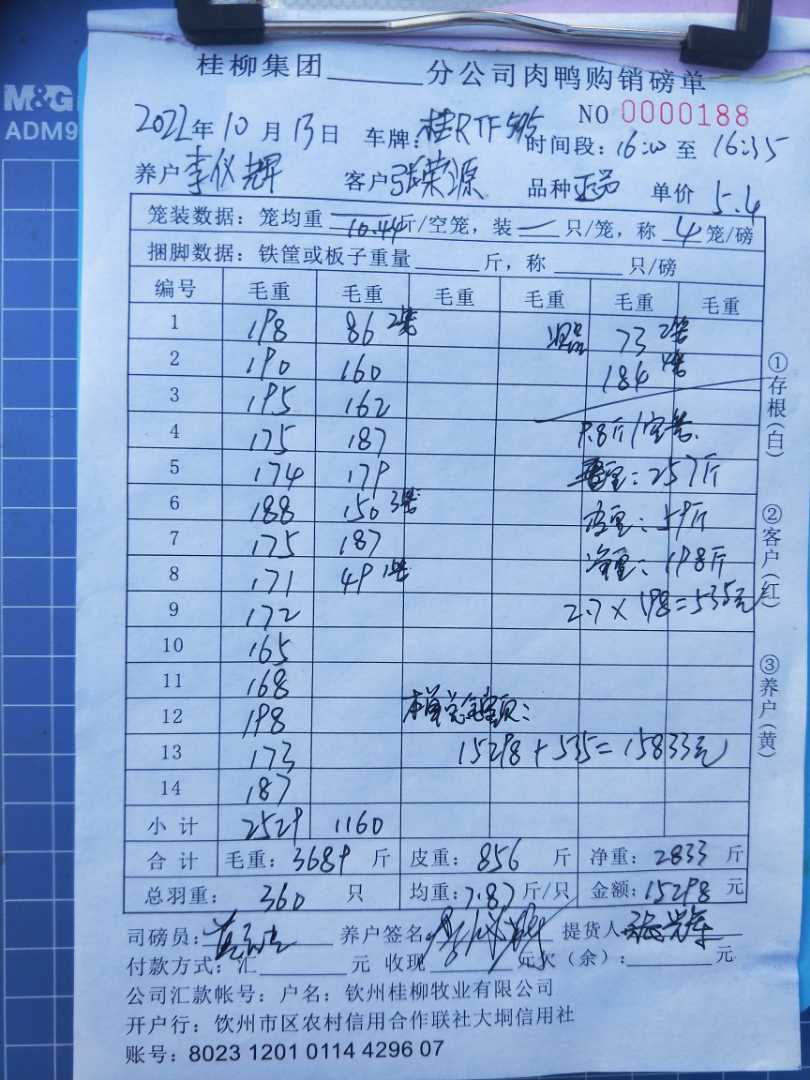 M&G
ADM9
桂柳集团______分公司肉鸭购销磅单
NO 0000188
2022年10月13日 车牌:桂RTF 时间段:16:10至16:35
养户 李仪辉 客户 张荣源 品种 正品 单价 5.4
笼装数据:笼均重 10.44斤/空笼,装一只/笼,称4笼/磅
捆脚数据:铁筐或板子重量______斤,称______只/磅
编号 毛重 毛重 毛重 毛重 毛重 毛重
1 198 86 2笼 73 2笼
2 190 160 184 4笼
3 195 162
4 175 187 9.8斤/空笼
5 174 179 毛重:257斤
6 188 150 3笼 皮重:59斤
7 175 187 净重:198斤
8 171 49 1笼
9 172 2.7×198=535元
10 165
11 168
12 198 本单总金额:
13 173 15298+535=15833元
14 187
小计 2529 1160
合计 毛重:3689斤 皮重:856斤 净重:2833斤
总羽重:360只 均重:7.87斤/只 金额:15298元
司磅员: 养户签名: 提货人:
付款方式:汇______元 收现______元欠(余):______元
公司汇款帐号:户名:钦州桂柳牧业有限公司
开户行:钦州市区农村信用合作联社大垌信用社
账号:8023 1201 0114 4296 07
①存根(白)
②客户(红)
③养户(黄)